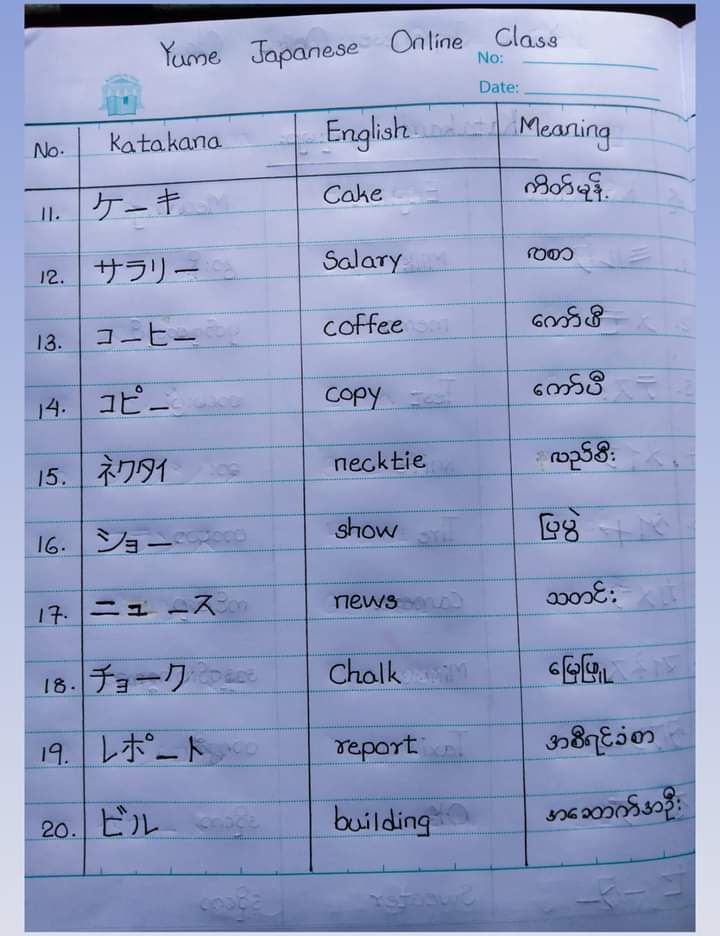 Yume Japanese Online Class
No:
Date:
No. Katakana English Meaning
11. ケーキ Cake ကိတ်မုန့်
12. サラリー Salary လစာ
13. コーヒー coffee ကော်ဖီ
14. コピー copy ကော်ပီ
15. ネクタイ necktie လည်စီး
16. ショー show ပြပွဲ
17. ニュース news သတင်း
18. チョーク Chalk မြေဖြူ
19. レポート report အစီရင်ခံစာ
20. ビル building အဆောက်အဦး